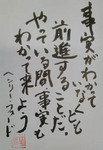 事実がわかて
いなくとも
前進することだ。
やっている間に事実も
わかて来よう
ヘンリーフォード